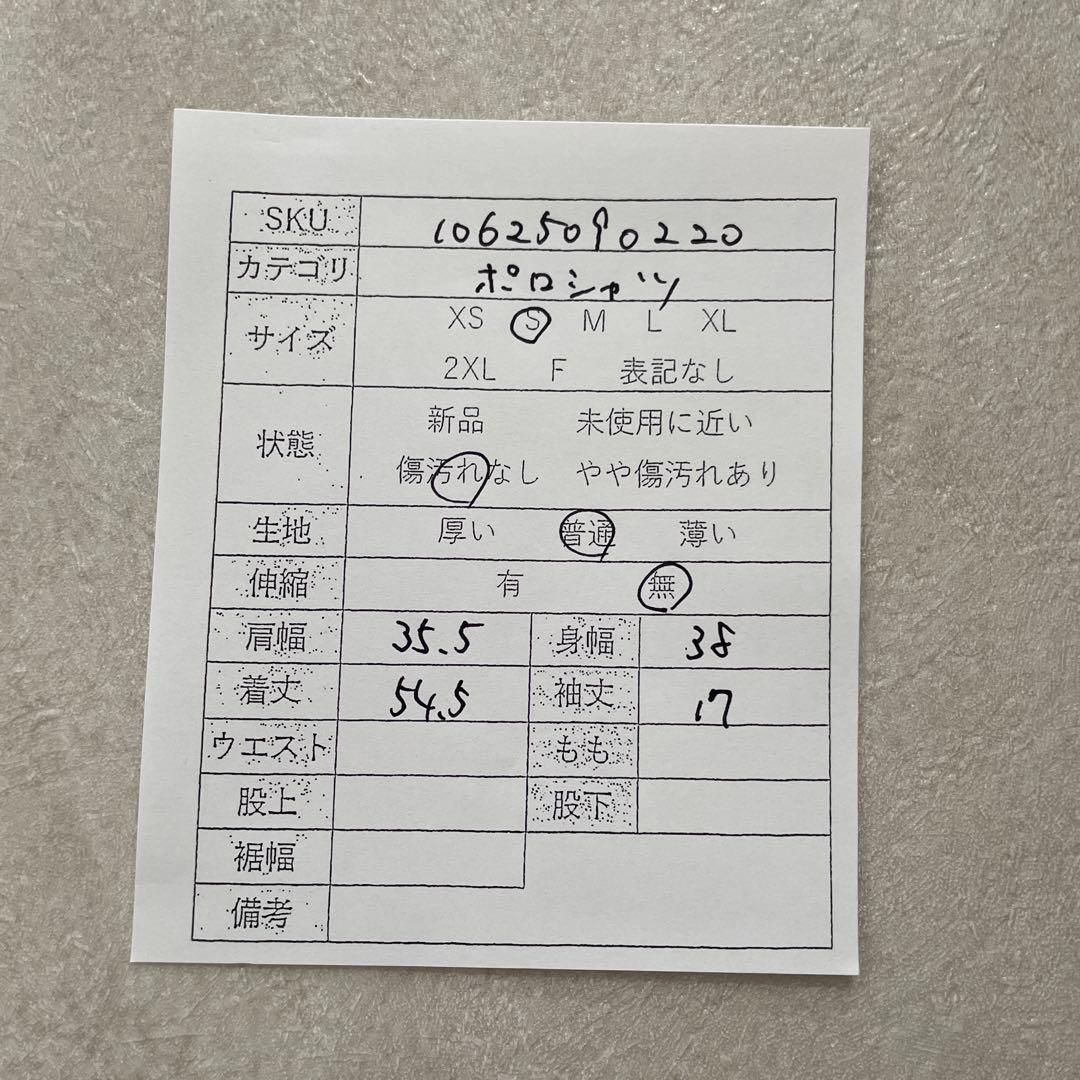 SKU 10625090220
カテゴリ ポロシャツ
サイズ XS S M L XL
2XL F 表記なし
状態 新品 未使用に近い
傷汚れなし やや傷汚れあり
生地 厚い 普通 薄い
伸縮 有 無
肩幅 35.5 身幅 38
着丈 54.5 袖丈 17
ウエスト もも
股上 股下
裾幅
備考